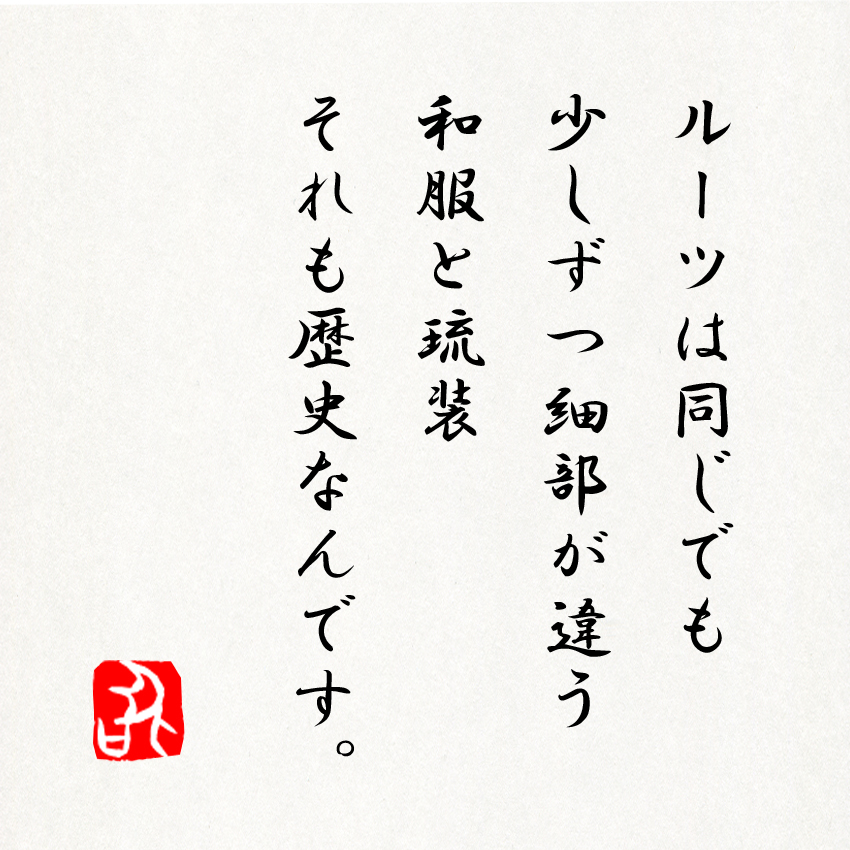 ルーツは同じでも
少しずつ細部が違う
和服と琉装
それも歴史なんです。